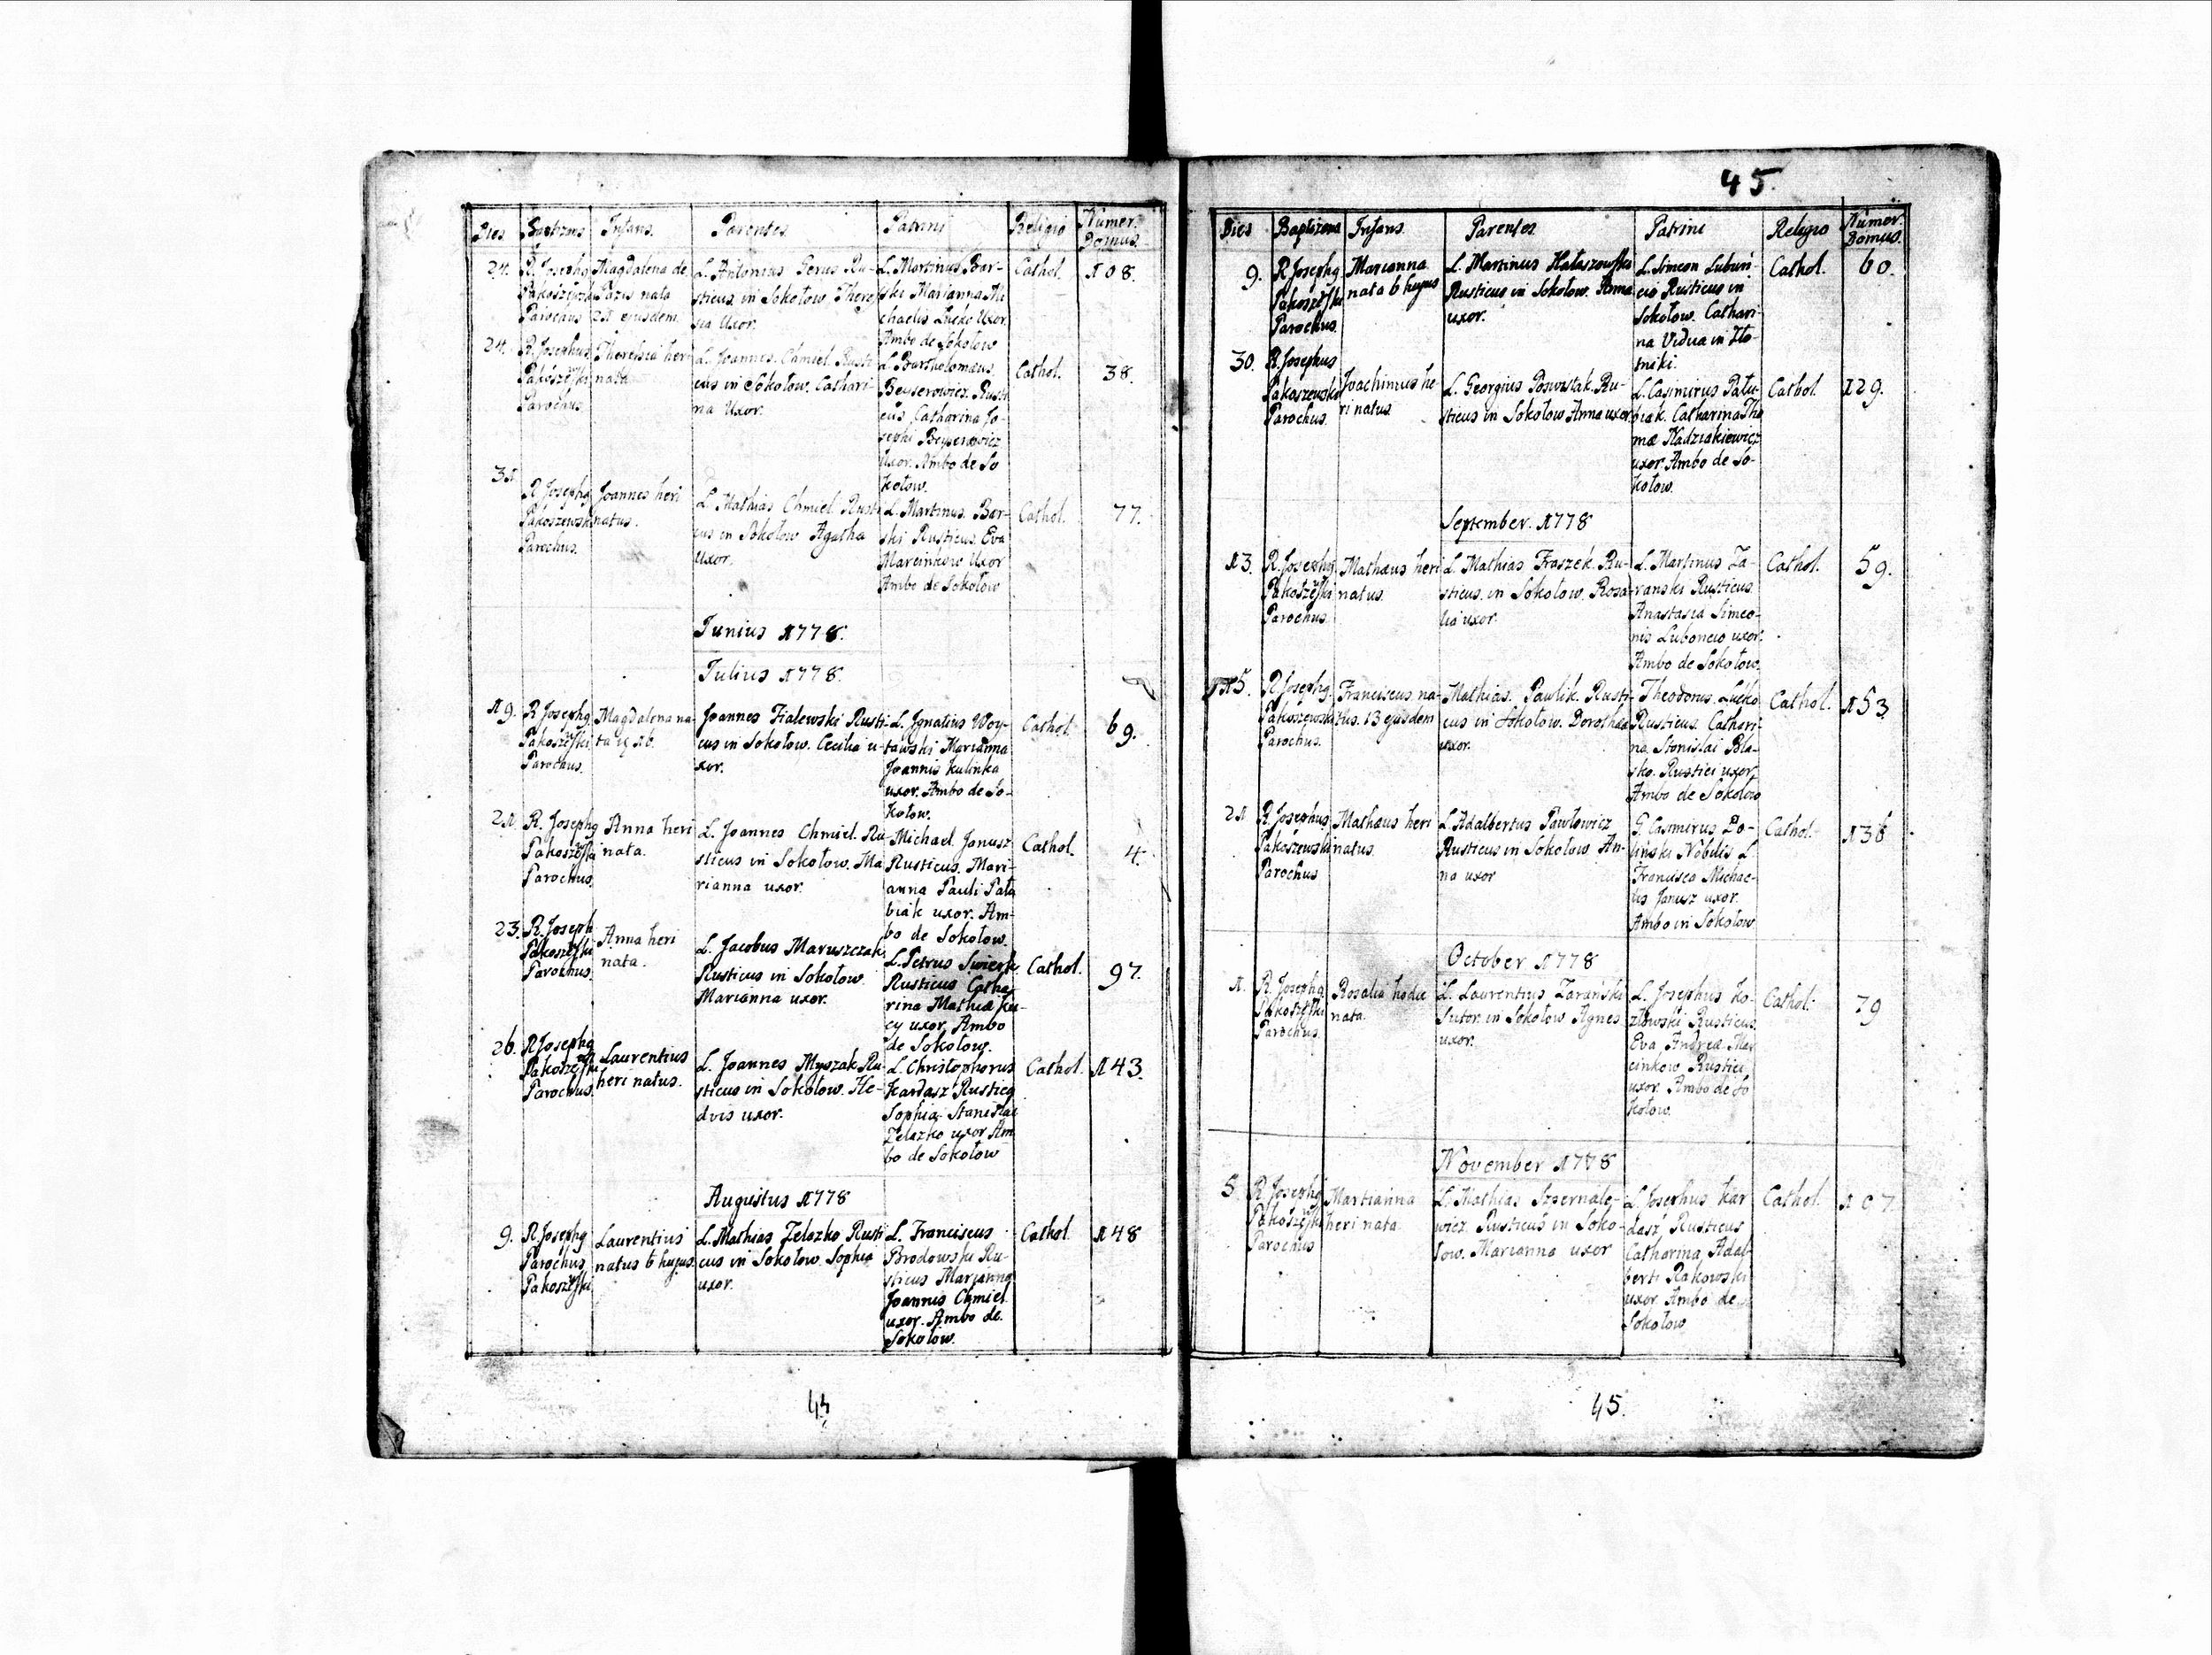 45.
Dies
Baptizans
Infans.
Parentes
Patrini
Religio
Numer. Domus.
24.
R. Josephg
Pakoszewski
Parochus
Magdalena de
nata
21 ejusdem.
L. Antonius Gerus Ru-
sticus in Sokołow. There
sia Uxor.
L. Martinus Bar-
ski Marianna Mi
chaelis Lucko Uxor
Ambo de Sokołow
Cathol.
108.
24.
R. Josephus
Pakoszewski
Parochus.
Theresia heri
nata
L. Joannes Chmiel Rusti
cus in Sokołow. Cathari-
na Uxor.
L. Bartholomæus
Beyserowicz. Rusti
cus, Catharina Jo-
sephi Beyserowicz
Uxor. Ambo de So
kołow.
Cathol.
38.
31
R Josephg
Pakoszewski
Parochus.
Joannes heri
natus.
L. Mathias Chmiel Rusti
cus in Sokołow Agatha
Uxor.
L. Martinus Bar-
ski Rusticus. Eva
Marcinkow Uxor
Ambo de Sokołow
Cathol.
77.
Junius 1778.
Julius 1778.
19.
R Josephg
Pakoszewski
Parochus.
Magdalena na-
ta 16.
Joannes Fialewski Rusti-
cus in Sokołow. Cecilia u-
xor.
L. Ignatius Woy-
tawski Marianna
Joannis Kulinka
uxor. Ambo de So-
kołow.
Cathol.
69.
21
R. Josephg
Pakoszewski
Parochus.
Anna heri
nata.
L. Joannes Chmiel. Ru-
sticus in Sokołow. Ma
rianna uxor.
Michael Janusz
Rusticus. Mari-
anna Pauli Pała
biak uxor. Am-
bo de Sokołow.
Cathol.
4.
23.
R. Joseph
Pakoszewski
Parochus.
Anna heri
nata.
L. Jacobus Maruszczak
Rusticus in Sokołow
Marianna uxor.
L. Petrus Swierk
Rusticus Catha
rina Mathiæ Ku-
cy uxor, Ambo
de Sokołow.
Cathol.
97.
26.
R Josephg
Pakoszewski
Parochus.
Laurentius
heri natus.
L. Joannes Myszak Ru-
sticus in Sokołow. He-
dvis uxor.
L. Christophorus
Kardasz Rusticg
Sophia Stanislai
Zelazko uxor Am
bo de Sokołow
Cathol.
143.
Augustus 1778
9.
R Josephg
Parochus
Pakoszewski
Laurentius
natus 6 hujus.
L. Mathias Zelazko Rusti
cus in Sokołow. Sophia
uxor.
L. Franciscus
Brodowski Ru-
sticus Marianna
Joannis Chmiel
uxor. Ambo de
Sokołow.
Cathol
148
44
Dies
Baptizans
Infans.
Parentes.
Patrini
Religio
Numer. Domus.
9.
R Josephg
Pakoszewski
Parochus.
Marianna
nata 6 hujus
L. Martinus Hałaszowski
Rusticus in Sokołow. Anna
uxor.
L. Simeon Luboń-
cio Rusticus in
Sokołow. Cathari-
na Vidua in Zło-
tniki.
Cathol.
60.
30.
R. Josephus
Pakoszewski
Parochus.
Joachimus he-
ri natus.
L. Georgius Powstak. Ru-
sticus in Sokołow Anna uxor
L. Casimirus Pału-
biak. Catharina Tho
mæ Kadziakiewicz
uxor. Ambo de So-
kołow.
Cathol.
129.
September. 1778
13.
R. Josephg
Pakoszewski
Parochus.
Mathæus heri
natus.
L. Mathias Fraszek. Ru-
sticus in Sokołow. Rosa-
lia uxor.
L. Martinus Za-
ranski Rusticus.
Anastasia Simeo-
nis Luboncio uxor.
Ambo de Sokołow.
Cathol.
59.
15.
R Josephg
Pakoszewski
Parochus.
Franciscus na-
tus. 13 ejusdem
Mathias. Pawlik Rusti-
cus in Sokołow. Dorothea
uxor.
Theodorus. Lucko
Rusticus. Cathari-
na. Stanislai Bla-
sko. Rustici uxor,
Ambo de Sokołow
Cathol.
153
21
R. Josephus
Pakoszewski
Parochus
Mathæus heri
natus.
L. Adalbertus Pawłowicz
Rusticus in Sokołow. An-
na uxor
G. Casimirus Do-
liński Nobilis L.
Francisca Michae-
lis Janusz uxor.
Ambo in Sokołow
Cathol.
136
October 1778
1.
R. Josephg
Pakoszewski
Parochus.
Rosalia hodie
nata.
L. Laurentius Zarański
Sutor in Sokołow Agnes
uxor.
L. Josephus Ko-
złowski Rusticus.
Eva Andreæ Mar
cinkow Rustici
uxor. Ambo de So
kołow.
Cathol.
79
November 1778
5.
R Josephg
Pakoszewski
Parochus
Martianna
heri nata.
L. Mathias
wicz. Rusticus in Soko-
łow. Marianna uxor
L. Josephus Kar
dasz, Rusticus
Catharina Adal-
berti Rakowski
uxor Ambo de
Sokołow
Cathol.
107
45.